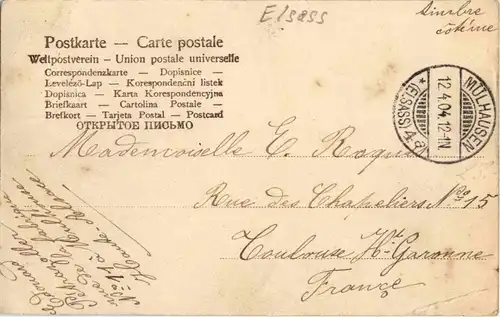 Elsass
timbre
côté me
Postkarte — Carte postale
Weltpostverein — Union postale universelle
Correspondenzkarte — Dopisnice —
Levelező-Lap — Korespondenční listek
Dopisnica — Karta Korespondencyjna
Briefkaart — Cartolina Postale —
Brefkort — Tarjeta Postal — Postcard
ОТКРЫТОЕ ПИСЬМО
MÜLHAUSEN
12.4.04.12-1N
* (ELSASS) 4 a
Mademoiselle E. Roque
Rue des Chapeliers Nº 15
Toulouse Hte Garonne
France
Nº 11 à
Haute Alsace